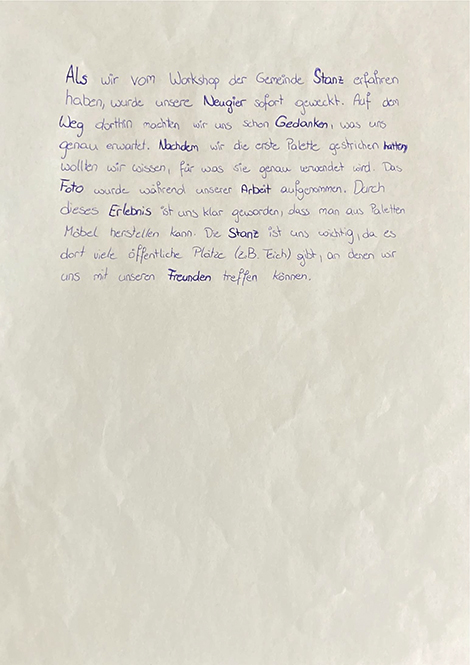 Als wir vom Workshop der Gemeinde Stanz erfahren
haben, wurde unsere Neugier sofort geweckt. Auf dem
Weg dorthin machten wir uns schon Gedanken, was uns
genau erwartet. Nachdem wir die erste Palette gestrichen hatten,
wollten wir wissen, für was sie genau verwendet wird. Das
Foto wurde während unserer Arbeit aufgenommen. Durch
dieses Erlebnis ist uns klar geworden, dass man aus Paletten
Möbel herstellen kann. Die Stanz ist uns wichtig, da es
dort viele öffentliche Plätze (z.B. Teich) gibt, an denen wir
uns mit unseren Freunden treffen können.